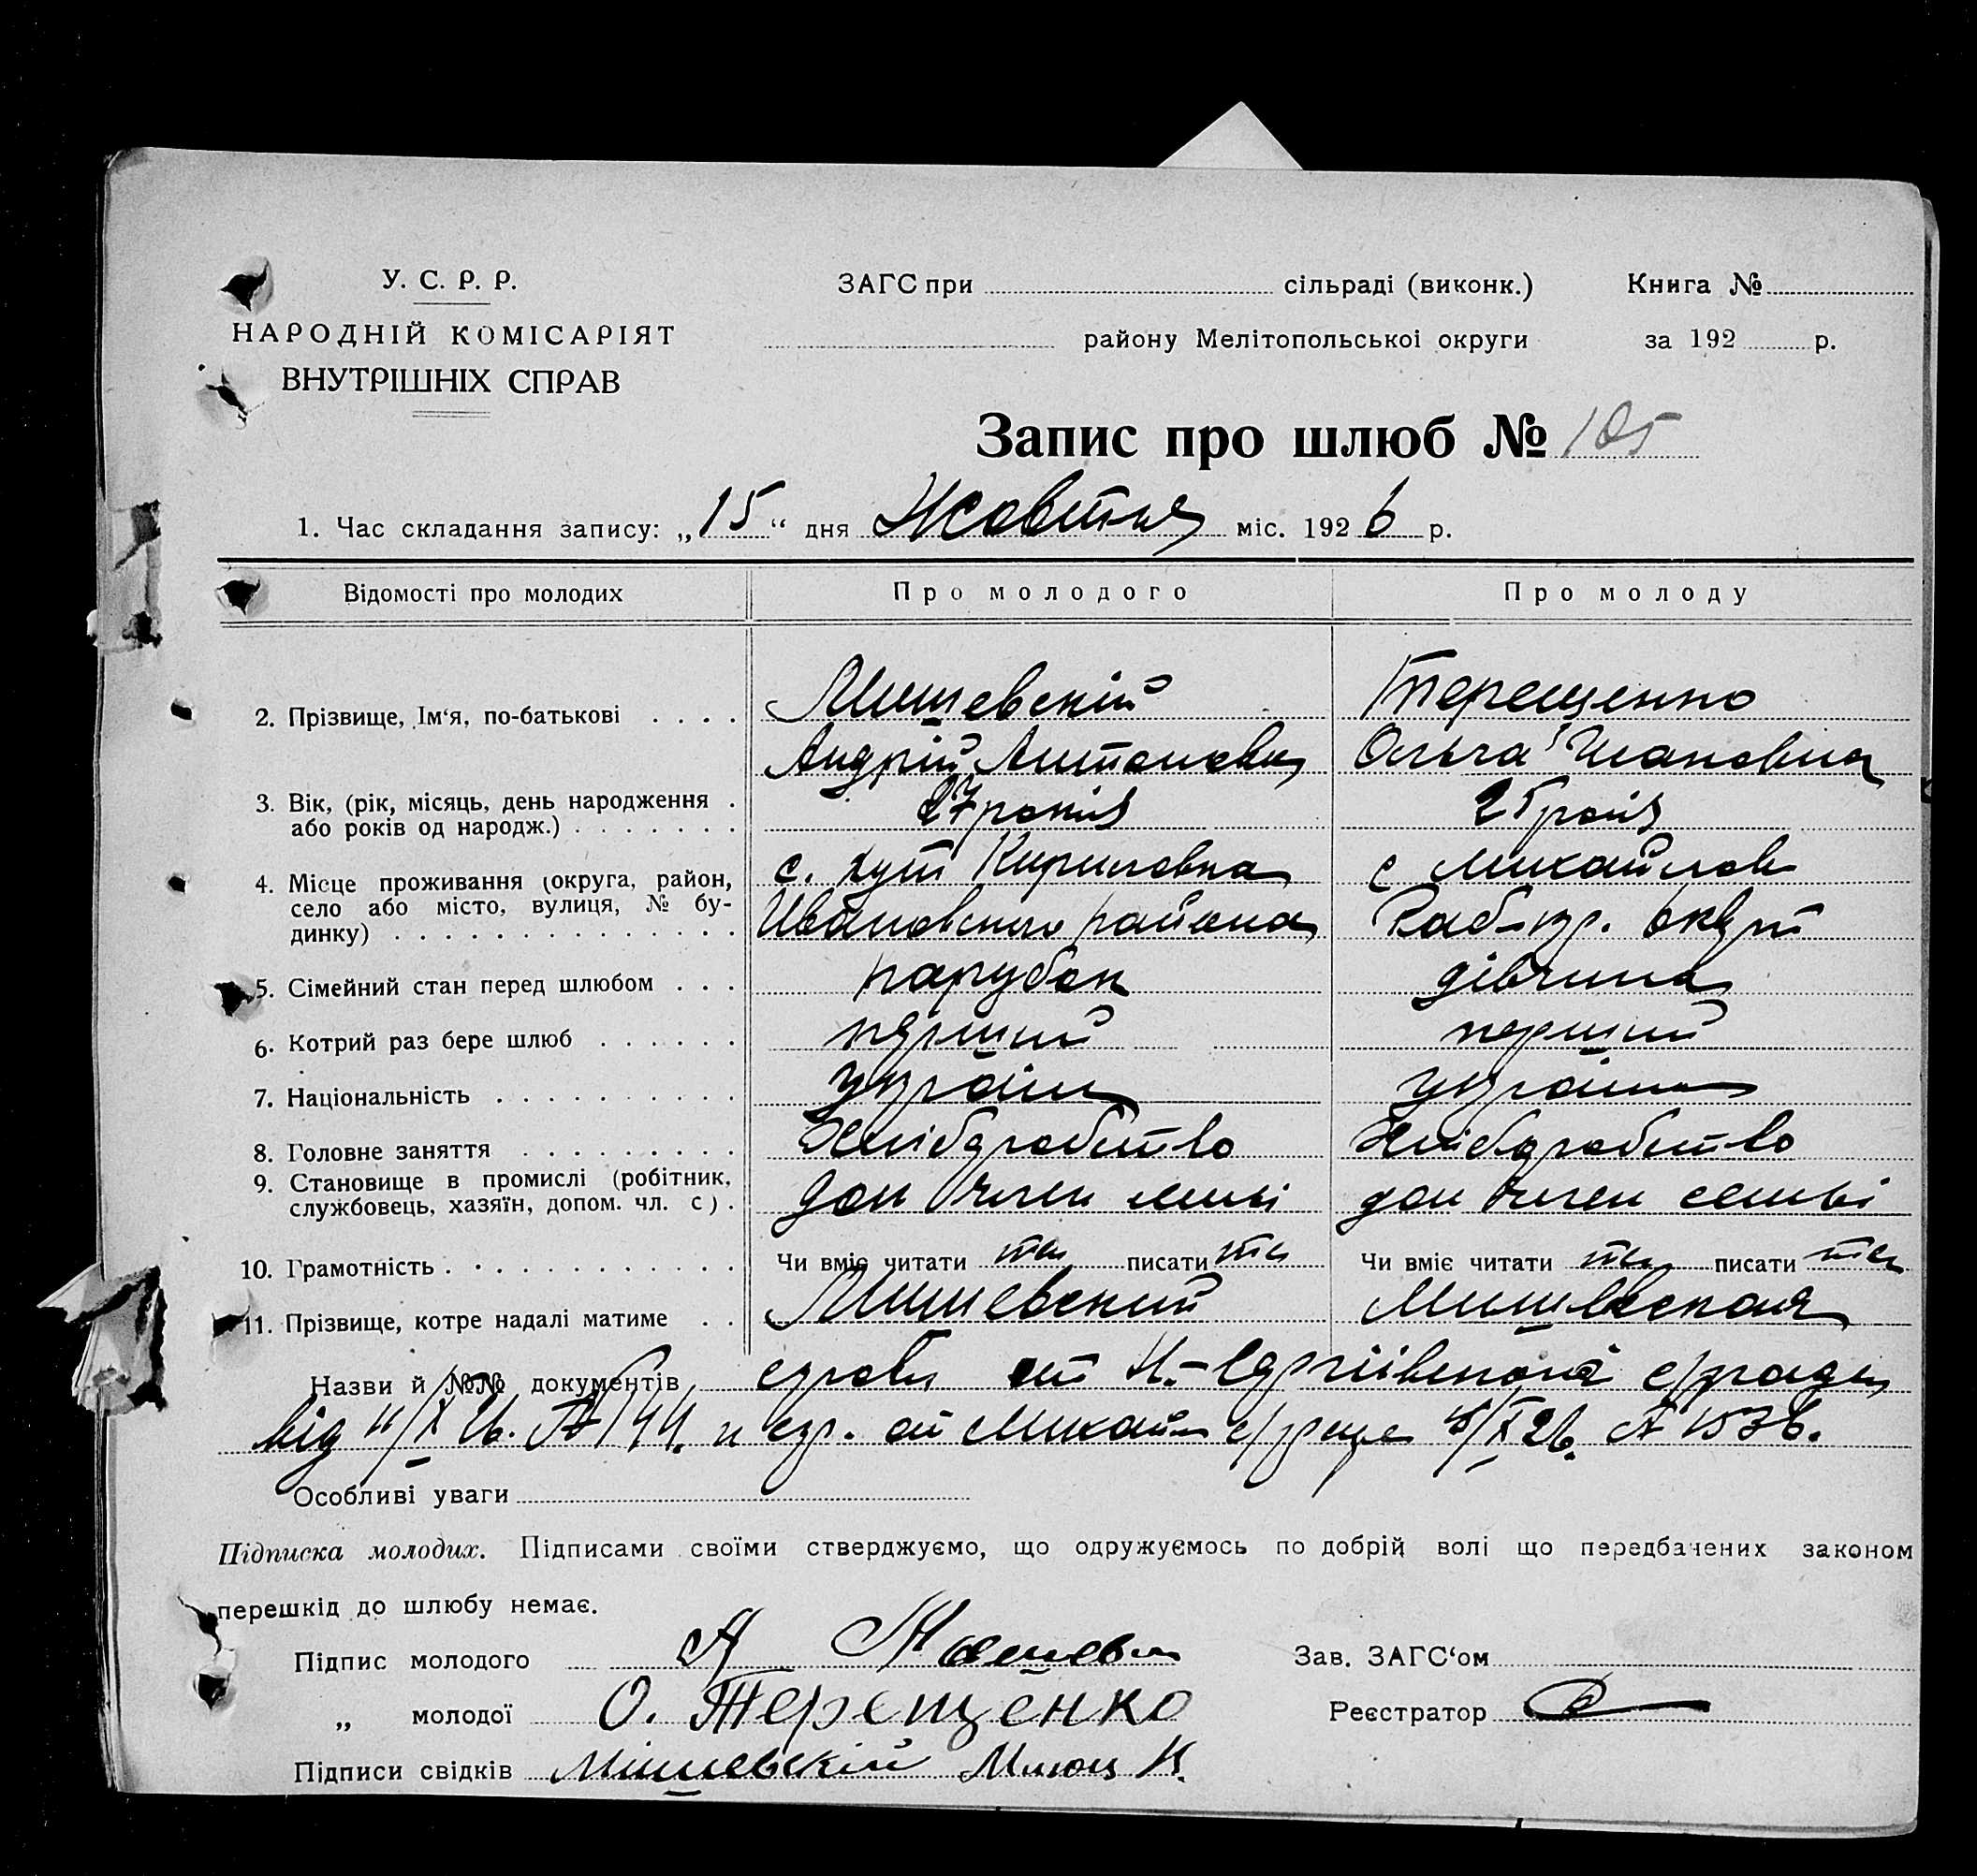 У. С. Р. Р.
НАРОДНІЙ КОМІСАРІЯТ
ВНУТРІШНІХ СПРАВ
ЗАГС при сільраді (виконк.)
району Мелітопольської округи
Книга №
за 192 р.
Запис про шлюб № 105
1. Час складання запису: „15“ дня Жовтня міс. 1926 р.
Відомості про молодих Про молодого Про молоду
2. Прізвище, Ім‘я, по-батькові Мишевскій Терещенко
Андрій Антонович Ольга Ивановна
3. Вік, (рік, місяць, день народження
або років од народж.) 27 років 25 років
4. Місце проживання (округа, район, с. хут Кириловка с Михайлов
село або місто, вулиця, № бу- Ивановского района окрут
динку)
5. Сімейний стан перед шлюбом парубок дівчина
6. Котрий раз бере шлюб перший перший
7. Національність україн україн
8. Головне заняття Хліборобство Хліборобство
9. Становище в промислі (робітник,
службовець, хазяїн, допом. чл. с). доп член семьі доп член семьі
10. Грамотність Чи вміє читати так писати так Чи вміє читати так писати так
11. Прізвище, котре надалі матиме Мишевский Мишевская
Назви й №№ документів от Н.- с/ради
від 11/X 26. № 1 и от Михайл с/раде /X 26. № 1536.
Особливі уваги
Підписка молодих. Підписами своїми стверджуємо, що одружуємось по добрій волі що передбачених законом
перешкід до шлюбу немає.
Підпис молодого А Мишевск Зав. ЗАГС‘ом
„ молодої О. Терещенко Реєстратор
Підписи свідків Мишевскій